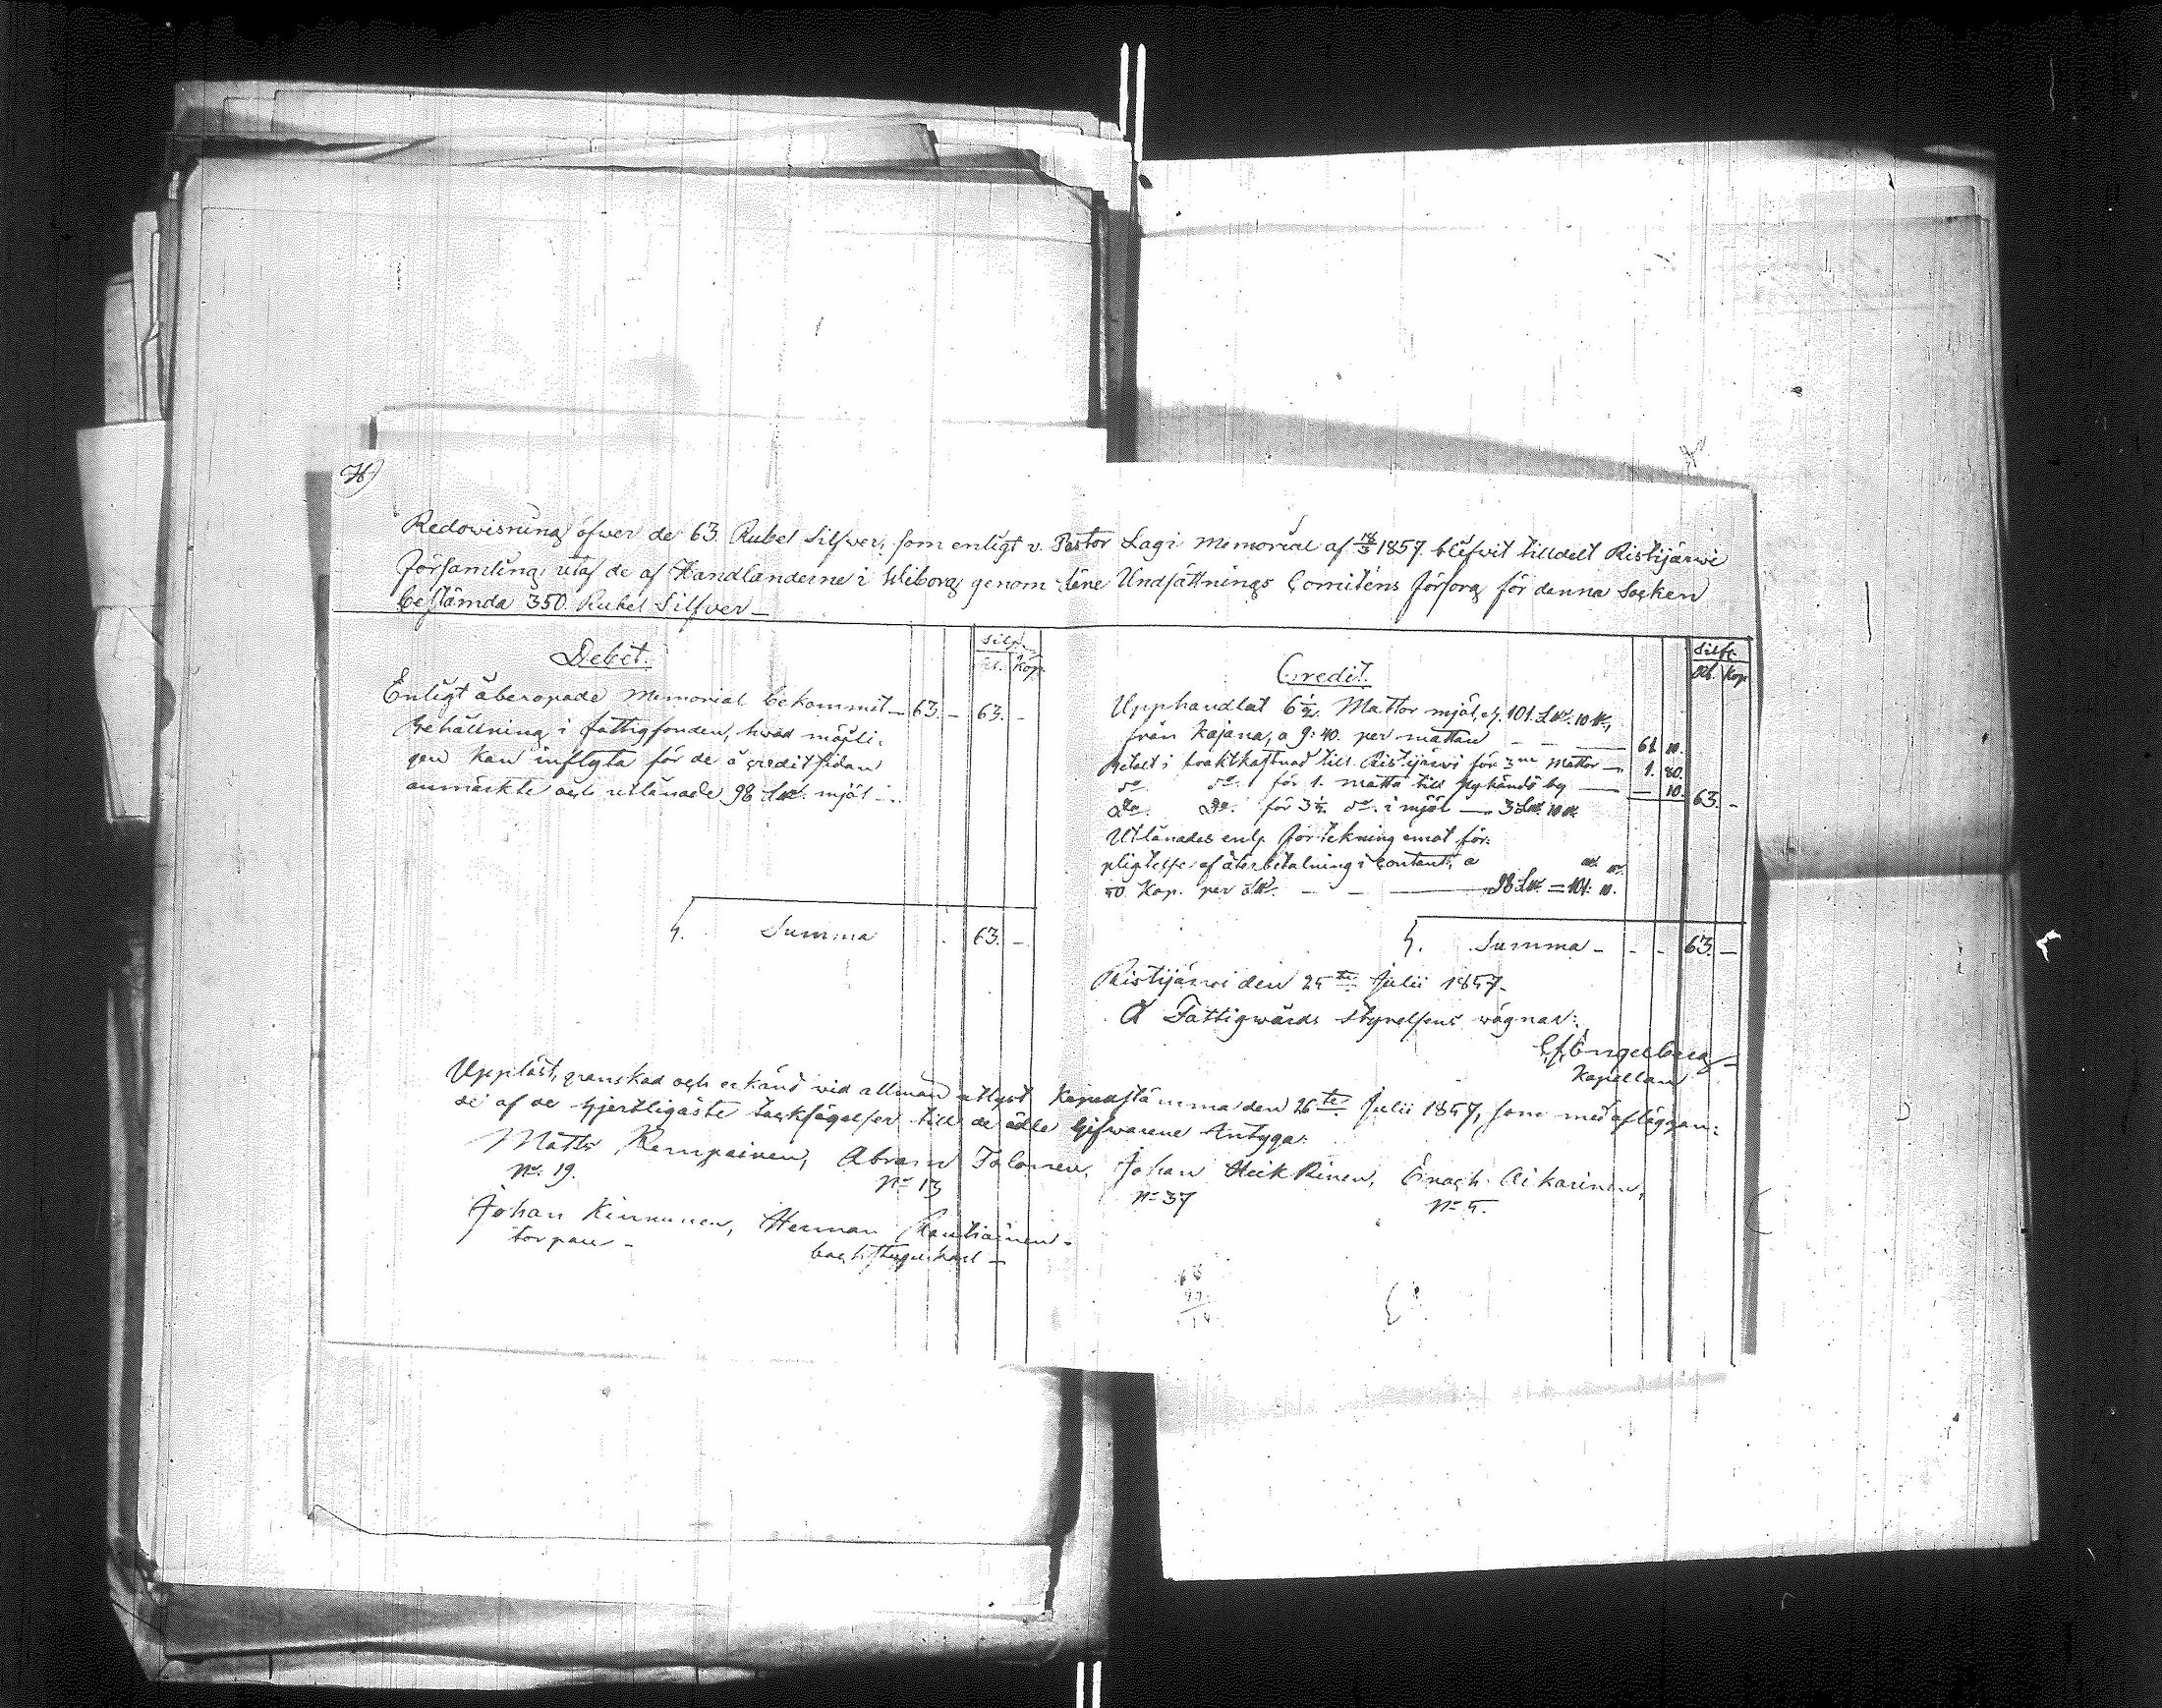 H)
Redovisning öfwer de 63. Rubel Silfwer, som enligt v. Pastor Lagi Memorial af 18/5 1857. blifvit tilldelt Ristijärwi
Församling utaf de af Handlanderne i Wiborg genom Läne Undsättnings Comiténs försorg för denna Socken
bestämda 350. Rubel Silfver_
Debit.
Silfr.
Rl. Kop.
Enligt åberopade Memorial bekommit — 63. – 63. –
Behållning i fattigfonden, hvad möjli-
gen kan inflyta för de å credit sidan
anmärkte och utlånade 98 L℔. mjöl
S. Summa 63. –
Credit.
Silfr.
Rbl. Kop
Upphandlat 6 1/2 Mattor mjöl, 101. L℔. 10 ℔,
från Kajana, a 9: 40. per mattan — 61. 10.
Betalt i fraktkostnad till Ristijärwi för 3ne Mattor — 1. 80.
do do för 1. matta till by — – 10. 63. –
Do. Do. för 3 1/2 do. i mjöl — 3 L℔. 10 ℔.
Utlånades enl. förtekning emot för-
pligtelse af återbetalning i contant, a
50. Kop. per L℔. — 98 L℔. = 101. 10.
S. Summa – – – 63. –
Ristijärwi den 25te Julii 1857.
å Fattigwårds Styrelsens wägnar:
C. f. Engelberg
Kapellan
Uppläst, granskad och erkänd vid allmän utlyst Kapellstämma den 26te Julii 1857, som med afläggan-
de af de hjertligaste tacksägelser till de ädle Gifwarene Intyga:
Matts Kemppainen, Abram Tolonen, Johan Heikkinen, Enoch Oikarinen,
No. 19. No 13 No 37 No 5.
Johan Kinnunen, Herman Rautiainen.
torpare –